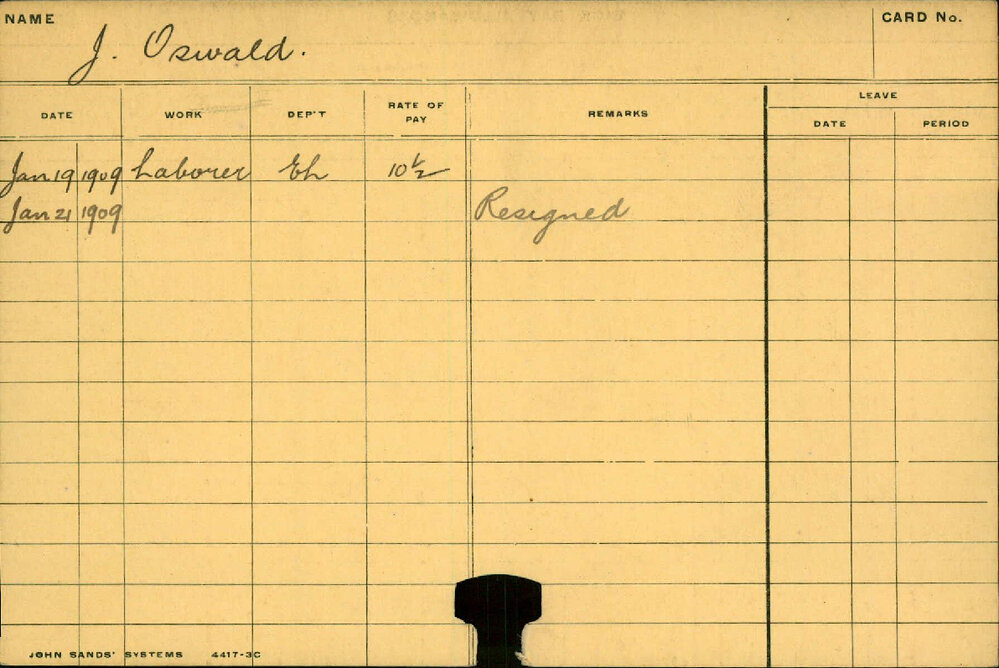 NAME
CARD No.
J. Oswald.
LEAVE
DATE WORK DEP'T RATE OF PAY REMARKS DATE PERIOD
Jan 19 1909 Laborer Eh 10 1/2
Jan 21 1909 Resigned
JOHN SANDS' SYSTEMS 4417-3C